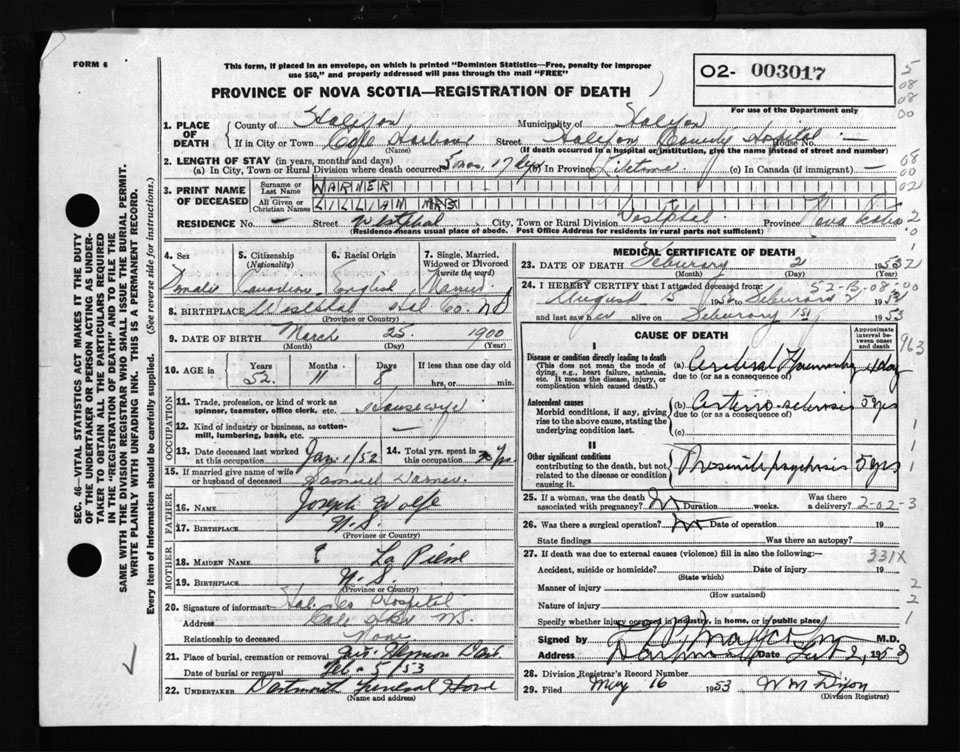 FORM 6
This form, if placed in an envelope, on which is printed "Dominion Statistics—Free, penalty for improper
use $50," and properly addressed will pass through the mail "FREE"
PROVINCE OF NOVA SCOTIA—REGISTRATION OF DEATH
02- 003017
For use of the Department only
1. PLACE OF DEATH
County of Halifax Municipality of Halifax
If in City or Town Cole Harbour Street Halifax County Hospital House No. —
(Name) (If death occurred in a hospital or institution, give the name instead of street and number)
2. LENGTH OF STAY (in years, months and days)
(a) In City, Town or Rural Division where death occurred 5 mos. 17 days (b) In Province Lifetime (c) In Canada (if immigrant) —
3. PRINT NAME OF DECEASED
Surname or Last Name WARNER
All Given or Christian Names LILLIAN MAE
RESIDENCE No. — Street Westphal City, Town or Rural Division Westphal Province Nova Scotia
(Residence means usual place of abode. Post Office Address for residents in rural parts not sufficient)
4. Sex Female
5. Citizenship (Nationality) Canadian
6. Racial Origin English
7. Single, Married, Widowed or Divorced (write the word) Married
8. BIRTHPLACE Westphal Hal Co. NS
(Province or Country)
9. DATE OF BIRTH March 25 1900
(Month) (Day) (Year)
10. AGE in Years 52 Months 11 Days 8 If less than one day old
hrs., or min.
OCCUPATION
11. Trade, profession, or kind of work as
spinner, teamster, office clerk, etc. Housewife
12. Kind of industry or business, as cotton-
mill, lumbering, bank, etc. —
13. Date deceased last worked at this occupation Jan. 1/52
14. Total yrs. spent in this occupation yrs.
15. If married give name of wife
or husband of deceased Samuel Warner
FATHER
16. NAME Joseph Wolfe
17. BIRTHPLACE N.S.
(Province or Country)
MOTHER
18. MAIDEN NAME La Pierre
19. BIRTHPLACE N.S.
(Province or Country)
20. Signature of informant Hal. Co Hospital
Address Cole Hbr N.S.
Relationship to deceased None
21. Place of burial, cremation or removal Mt. Hermon Dart
Date of burial or removal Feb - 5/53
22. UNDERTAKER Dartmouth Funeral Home
(Name and address)
MEDICAL CERTIFICATE OF DEATH
23. DATE OF DEATH February 2 1953
(Month) (Day) (Year)
24. I HEREBY CERTIFY that I attended deceased from: 52-B-08-00
August 5 1952 to February 2 1953
and last saw her alive on February 1st 1953
CAUSE OF DEATH
Approximate interval between onset and death
I
Disease or condition directly leading to death
(This does not mean the mode of
dying, e.g., heart failure, asthenia,
etc. It means the disease, injury, or
complication which caused death.)
(a) Cerebral Haemorrhage 4 days
due to (or as a consequence of)
Antecedent causes
Morbid conditions, if any, giving
rise to the above cause, stating the
underlying condition last.
(b) Arterio-sclerosis 5 yrs
due to (or as a consequence of)
(c)
II
Other significant conditions
contributing to the death, but not
related to the disease or condition
causing it.
Presenile psychosis 5 yrs
25. If a woman, was the death
associated with pregnancy? No Duration weeks. Was there a delivery? 2-02-3
26. Was there a surgical operation? No Date of operation 19
State findings Was there an autopsy?
27. If death was due to external causes (violence) fill in also the following:— 331X
Accident, suicide or homicide? Date of injury 19
(State which)
Manner of injury
(How sustained)
Nature of injury
Specify whether injury occurred in industry, in home, or in public place
Signed by M.D.
Address Dartmouth Date Feb 2, 1953
28. Division Registrar's Record Number
29. Filed May 16 1953 W M Dixon
(Division Registrar)
SEC. 46—VITAL STATISTICS ACT MAKES IT THE DUTY
OF THE UNDERTAKER OR PERSON ACTING AS UNDER-
TAKER TO OBTAIN ALL THE PARTICULARS REQUIRED
IN THE "REGISTRATION OF DEATH" AND TO FILE THE
SAME WITH THE DIVISION REGISTRAR WHO SHALL ISSUE THE BURIAL PERMIT.
WRITE PLAINLY WITH UNFADING INK. THIS IS A PERMANENT RECORD.
Every item of information should be carefully supplied. (See reverse side for instructions.)